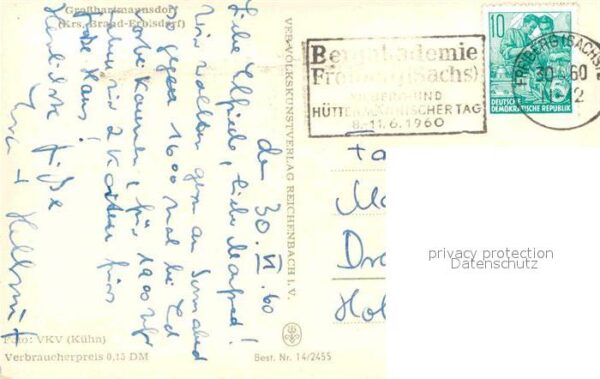 Großhartmannsdorf
(Krs. Brand-Erbisdorf)
den 30. VI. 60
Liebe Elfriede, lieber Manfred!
Wir wollten gern am Sonnabend
gegen 1600 mal bei Euch
vorbei kommen, für 1900 Uhr
haben wir 2 Karten fürs
Herzliche Grüße
+ Hellmut
Foto: VKV (Kühn)
Verbraucherpreis 0,15 DM
VEB VOLKSKUNSTVERLAG REICHENBACH I. V.
Best. Nr. 14/2455
Bergakademie
Freiberg (Sachs)
XII. BERG- UND
HÜTTENMÄNNISCHER TAG
8.-11.6.1960
10
DEUTSCHE
DEMOKRATISCHE REPUBLIK
FREIBERG (SACHS)
60
2
Fa
Ma
Dre
privacy protection
Datenschutz